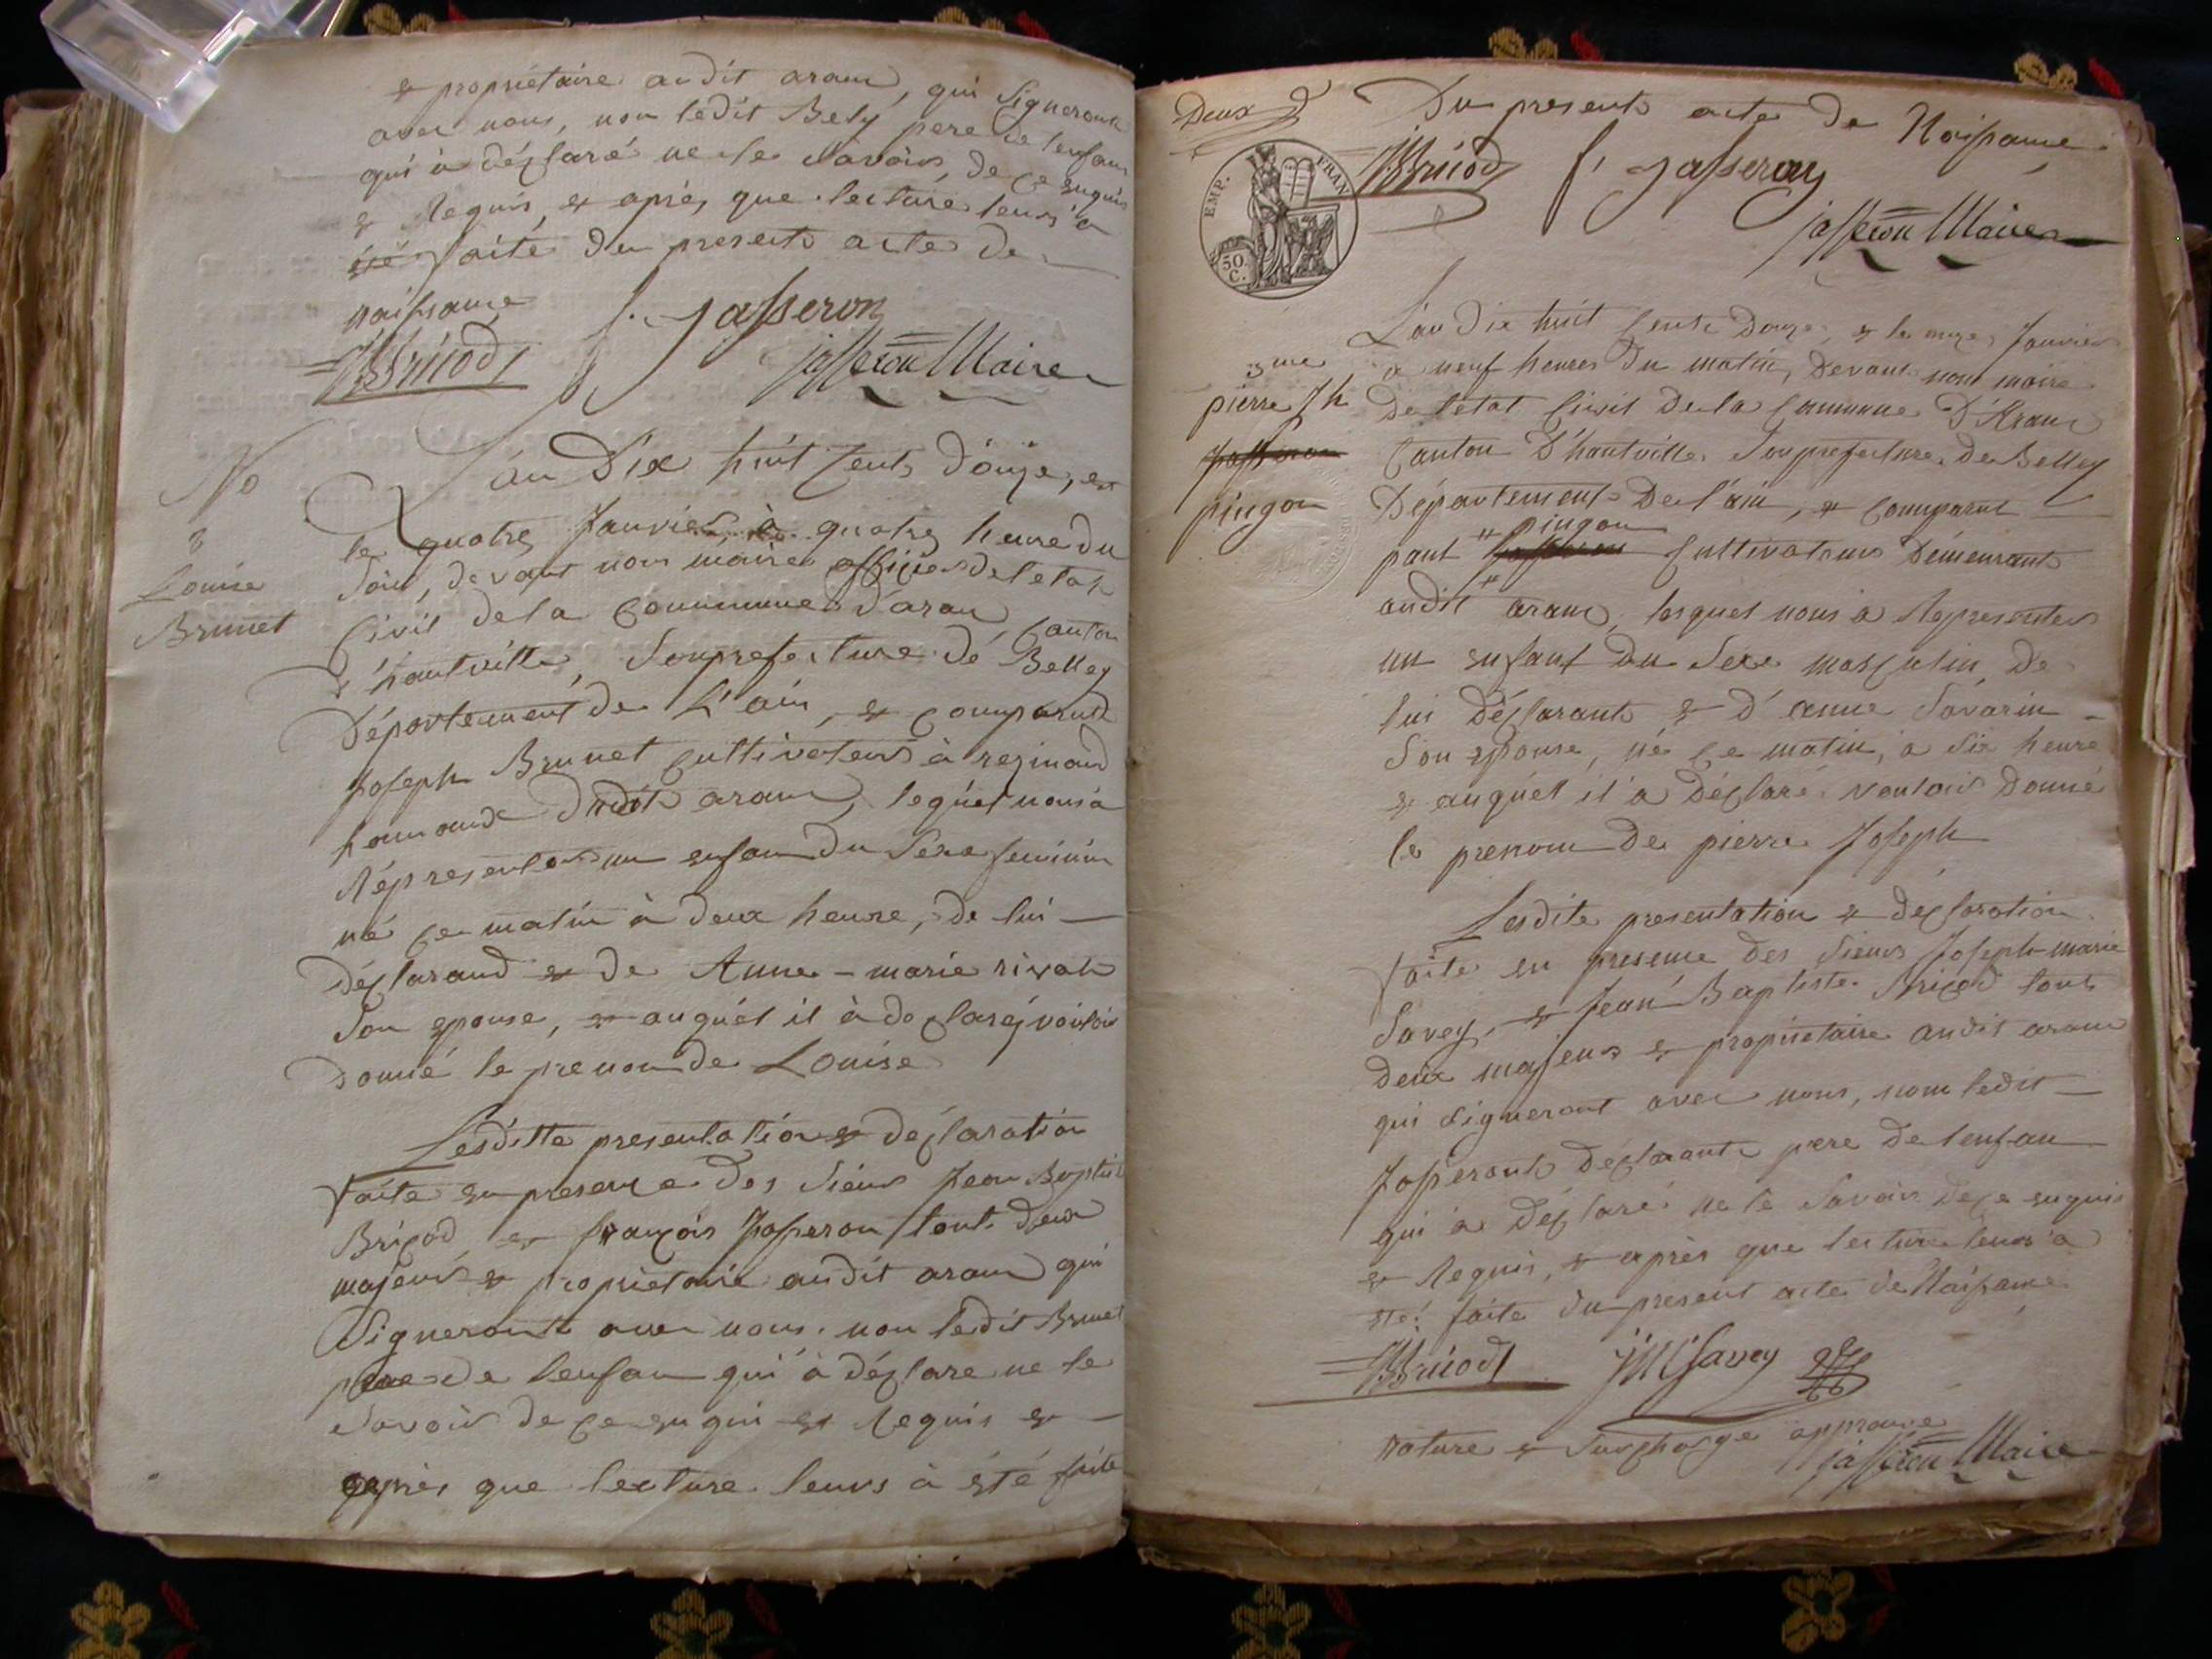 & propriétaire audit aranc, qui Signeront
avec nous, non ledit Bely pere de lenfant
qui à déclaré ne le Savoir, de ce enquis
& Requis, & après que lecture leurs a
été faite du present acte de
naissance
JBBricod f. Jasseron
jasseron Maire
No
2
Louise
Brunet
L'an Dix huit Cents douze, &
le quatre Janvier, à quatre heure du
Soir, devant nous maire officier de letat
Civil de la Commune d'aranc, Canton
d'hautville, Souprefecture de Belley
Département de L'ain, & comparut
Joseph Brunet Cultivateur à resinand
hameaude dudit aranc, lequel nous a
Réprésenter un enfan du Sexe feminin
né ce matin à deux heure, de lui
déclarand & de Anne-marie rivat
Son epouse, & auquel il à declaré vouloir
donné le prenom de Louise
Lesditte presentation & déclaration
faite en presence des Sieurs Jean Baptist
Bricod & françois Jasseron tout deux
majeurs & proprietaire audit aranc qui
Signeront avec nous, non ledit Brunet
pere de lenfan qui à déclare ne le
Savoir de ce enqui & Requis &
après que lecture leurs à été faite
Deux
Du present acte de Naissance
JBBricod f. Jasseron
jasseron Maire
EMP. FRAN
50.
C.
3me
pierre Jh
Jasseron
pingon
L'an Dix huit Cents Douze, & le onze Janvier
a neuf heures du matin, devant nous maire
De letat Civil de la Commune D'Aranc
Canton D'hautville Souprefecture De Belley
Département De l'ain, & Comparut
pingon
paul Jasseron Cultivateur Demeurant
audit aranc, lequel nous a Representer
un enfant du Sexe masculin, de
lui Déclarant & d'anne Savarin
Son epouse, né ce matin, a Six heure
& auquel il a Déclaré vouloir Donné
le prenom De pierre Joseph
Lesdite presentation & déclaration
faite en presence des Sieurs Joseph-marie
Savey, & Jean Baptiste Bricod tout
deux majeurs & propriétaire audit aranc
qui Signeront avec nous, nom ledit
Jasseront Déclarant pere De lenfan
qui à Déclaré ne le Savoir de ce enquis
& Requis, & après que lecture leurs a
été faite du present acte de Naissance
JBBricod JMSavey
rature & Surcharge approuve
jasseron Maire